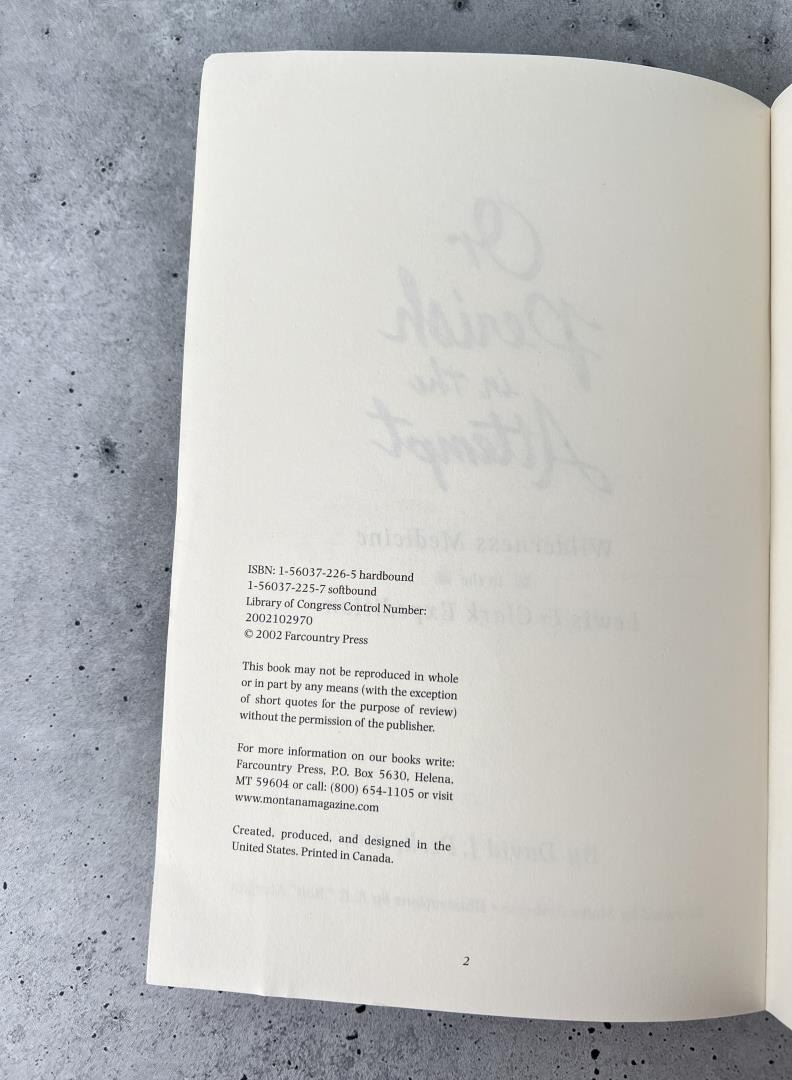 Or
Perish
in the
Attempt
Wilderness Medicine
in the
Lewis & Clark
ISBN: 1-56037-226-5 hardbound
1-56037-225-7 softbound
Library of Congress Control Number:
2002102970
© 2002 Farcountry Press
This book may not be reproduced in whole
or in part by any means (with the exception
of short quotes for the purpose of review)
without the permission of the publisher.
For more information on our books write:
Farcountry Press, P.O. Box 5630, Helena,
MT 59604 or call: (800) 654-1105 or visit
www.montanamagazine.com
Created, produced, and designed in the
United States. Printed in Canada.
By David J.
2